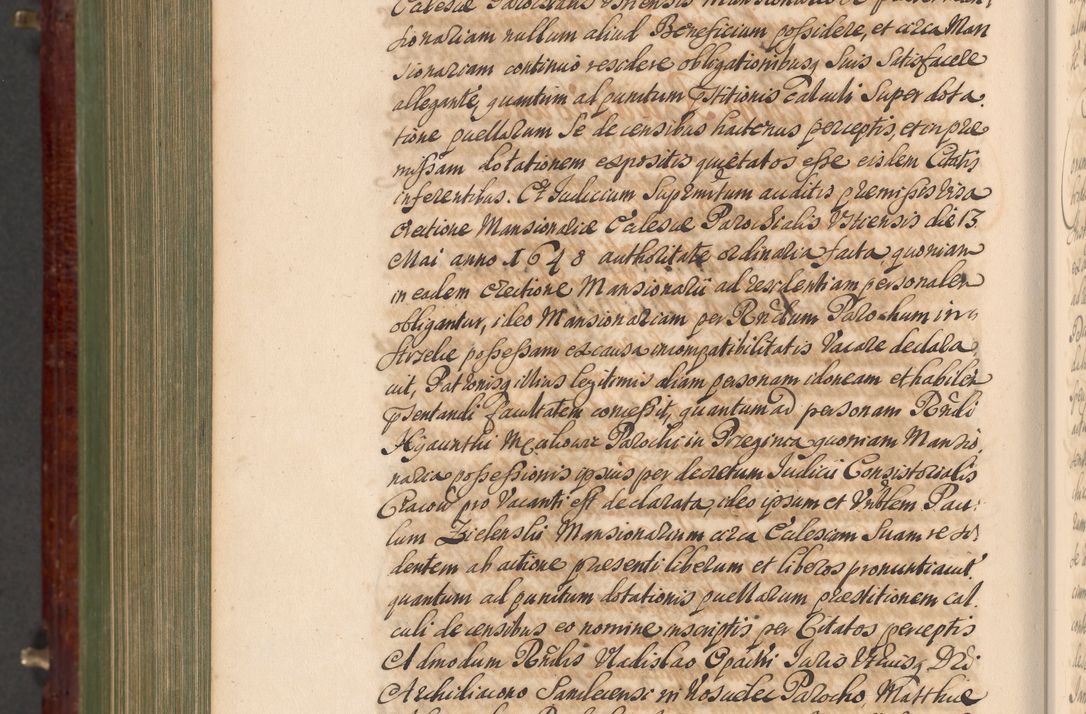 sionariam nullum aliud Beneficium possidere, et circa Man
sionariam continuo residere obligationibusq Suis Satisfacere
allegante, quantum ad punctum pstitionis Calculi Super dota
tione puellarum Se de censibus hactenus perceptis, et in pre
missam dotationem expositis quietatos esse eisdem Citatis
inferentibus. Et Judicium Supremitum auditis praemissis visa
erectione Mansionariae Ecclesiae Parochialis die 13
Mai anno 1648 authoritate ordinaria facta quoniam
in eadem erectione Mansionarii ad residentiam personalem
obligantur, ideo Mansionariam per Rndum Parochum in
Strzelce possessam ex causa incompatibilitatis Vacare declara
vit, Patronisq illius legitimis aliam personam idoneam et habilem
psentandi facultatem concessit, quantum ad personam Rndi
Hyacinthi Parochi in Przeginia quoniam Mansio
naria possessionis ipsius per decretum Judicii Consistorialis
Cracov pro Vacanti est declarata, ideo ipsum et Vnblem Pau
lum Zielenski Mansionarium circa Ecclesiam Suam resi
dentem ab actione praesenti liberum et liberos pronuntiavit
quantum ad punctum dotationis puellarum praestitionem cal
culi de censibus eo nomine inscriptis per Citatos perceptis
Admodum Rndis Vladislao Opacki Juris Vtriusq Dri
Archidiacono in Parocho, Matthiae